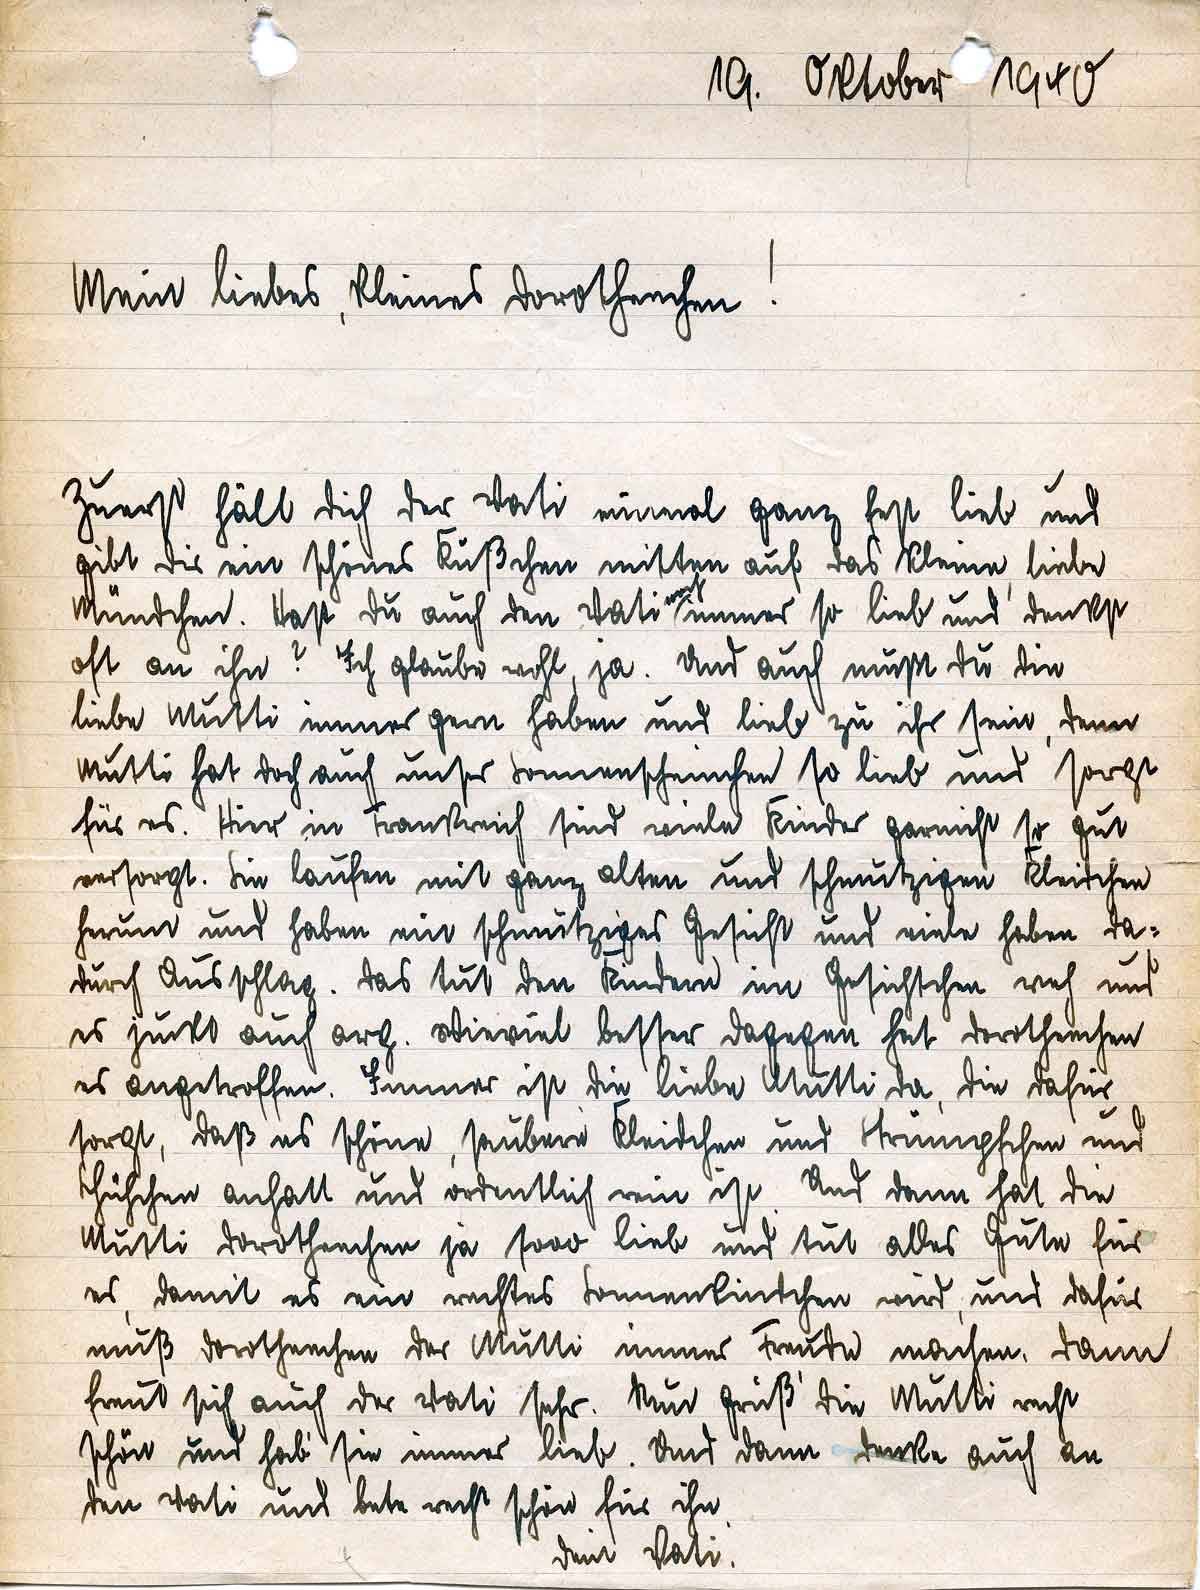 19. Oktober 1940
Mein liebes, kleines Dorotheechen!
Zuerst hält dich der Vati einmal ganz fest lieb und
gibt dir ein schönes Küßchen mitten auf das kleine, liebe
Mündchen. Hast du auch den Vati noch immer so lieb und denkst
oft an ihn? Ich glaube wohl, ja. Und auch mußt du die
liebe Mutti immer gern haben und lieb zu ihr sein, denn
Mutti hat doch auch unser Sonnenscheinchen so lieb und sorgt
für es. Hier in Frankreich sind viele Kinder garnicht so gut
versorgt. Sie laufen mit ganz alten und schmutzigen Kleidchen
herum und haben ein schmutziges Gesicht und viele haben da=
durch Ausschlag. Das tut den Kindern im Gesichtchen weh und
es juckt auch arg. Wieviel besser dagegen hat Dorotheechen
es angetroffen. Immer ist die liebe Mutti da, die dafür
sorgt, daß es schöne, saubere Kleidchen und Strümpfchen und
Schühchen anhatt und ordentlich rein ist. Und dann hat die
Mutti Dorotheechen ja sooo lieb und tut alles Gute für
es, damit es ein rechtes Sonnenkindchen wird, und dafür
muß Dorotheechen der Mutti immer Freude machen. Dann
freut sich auch der Vati sehr. Nun grüß' die Mutti recht
schön und hab' sie immer lieb. Und dann denke auch an
den Vati und bete recht schön für ihn.
Dein Vati.